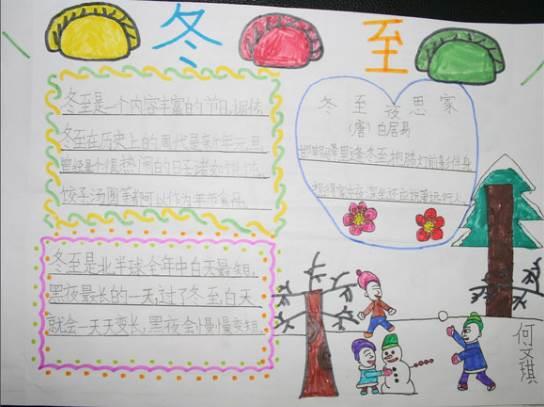 冬至
冬至是一个内容丰富的节日,据传,
冬至在历史上的周代是新年元旦,
曾经是个很热闹的日子,诸如
饺子汤圆等都可以作为年节食品。
冬至夜思家
(唐)白居易
邯郸驿里逢冬至,抱膝灯前影伴身,
想得家中夜深坐,还应说着远行人。
冬至是北半球全年中白天最短,
黑夜最长的一天,过了冬至,白天
就会一天天变长,黑夜会慢慢变短.
何文琪